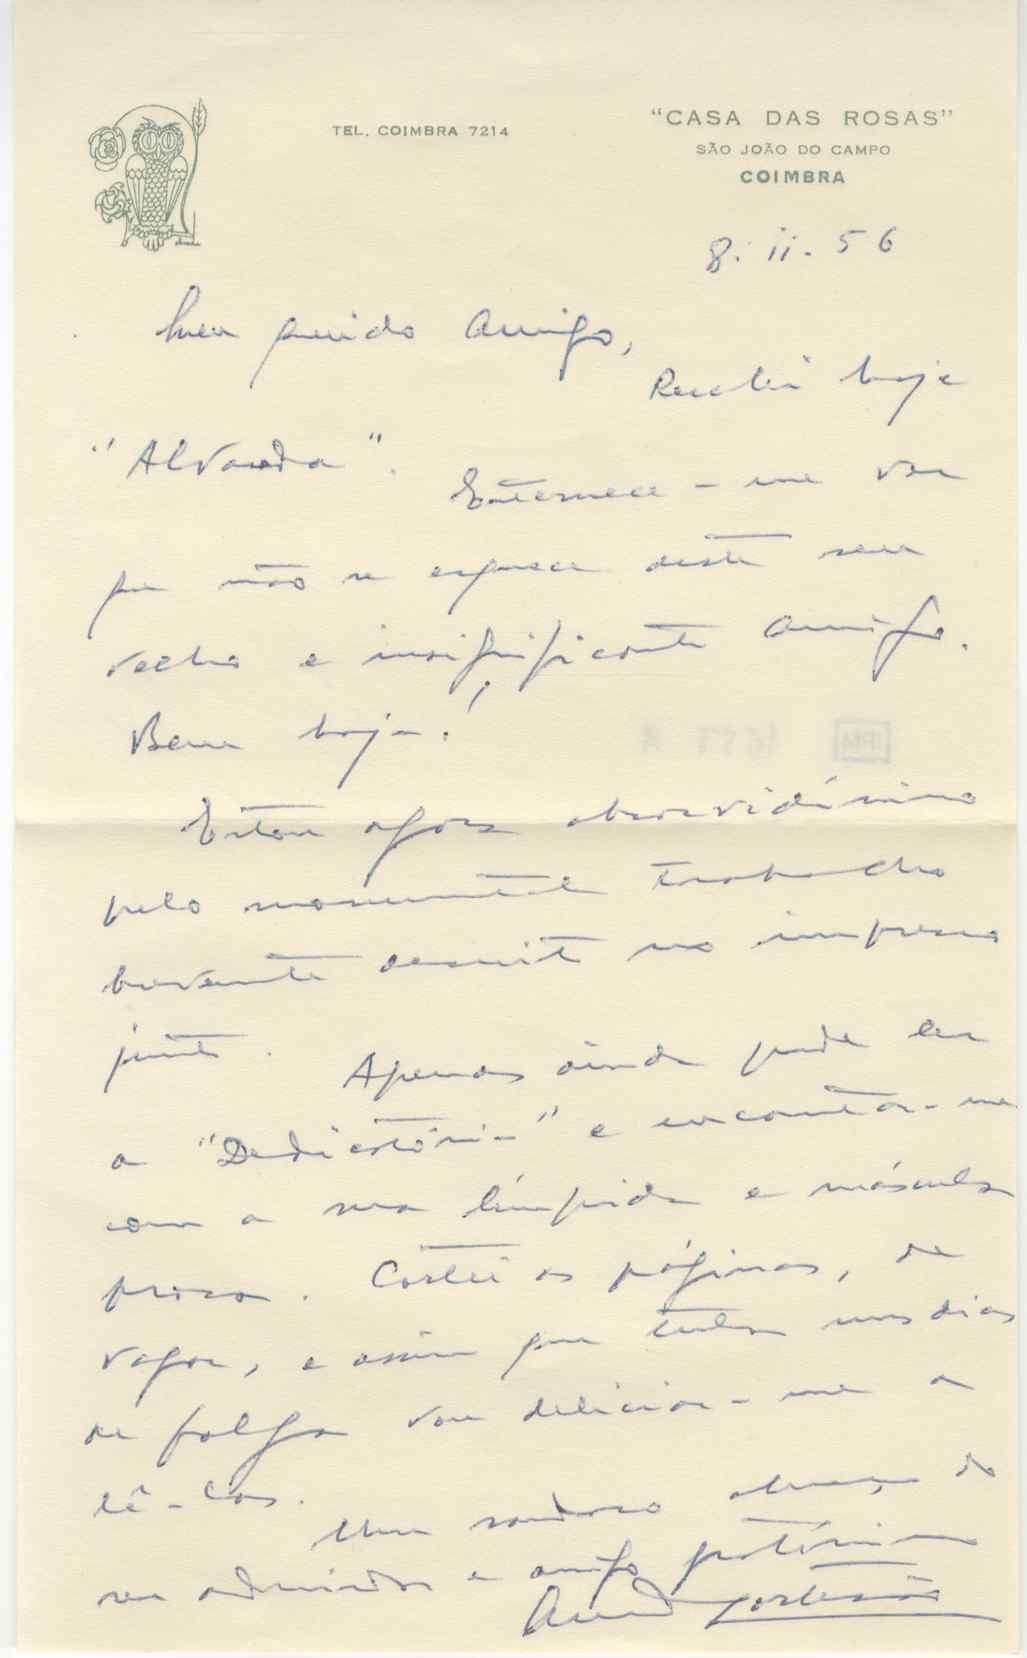 TEL. COIMBRA 7214
"CASA DAS ROSAS"
SÃO JOÃO DO CAMPO
COIMBRA
8. ii. 56
Meu querido Amigo,
Recebi hoje
"Alvorada". Enternece-me ver
que não se esquece deste seu
velho e insignificante amigo.
Bem haja!
Estou agora absorvidíssimo
pelo monumental trabalho
brevemente descrito no impresso
junto. Apenas ainda pude ler
a "Dedicatória" e encantar-me
com a sua límpida e máscula
prosa. Cortei as páginas, de
vagar, e assim que tenha uns dias
de folga vou deliciar-me a
lê-las.
Um saudoso abraço do
seu admirador e amigo
Armando Cortesão